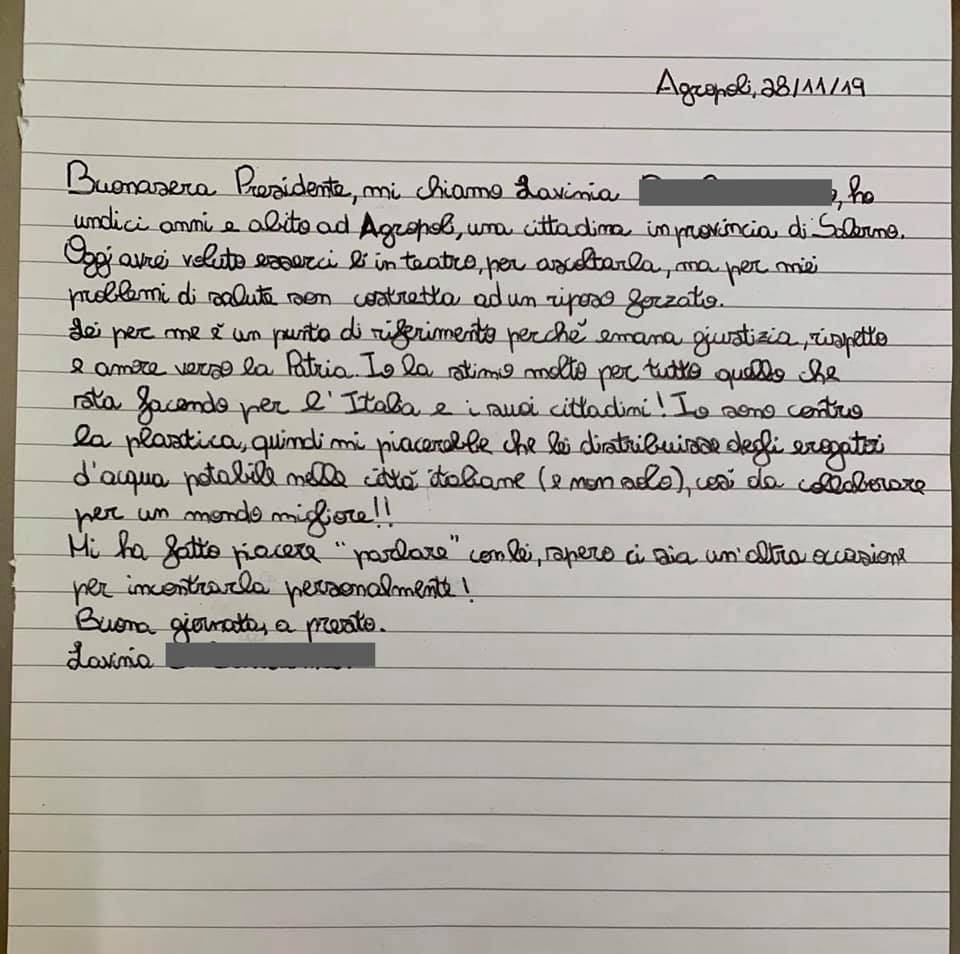 Agropoli, 28/11/19
Buonasera Presidente, mi chiamo Lavinia , ho
undici anni e abito ad Agropoli, una cittadina in provincia di Salerno.
Oggi avrei voluto esserci lì in teatro, per ascoltarla, ma per miei
problemi di salute son costretta ad un riposo forzato.
Lei per me è un punto di riferimento perché emana giustizia, rispetto
e amore verso la Patria. Io la stimo molto per tutto quello che
sta facendo per l'Italia e i suoi cittadini! Io sono contro
la plastica, quindi mi piacerebbe che lei distribuisse degli erogatori
d'acqua potabile nelle città italiane (e non solo), così da collaborare
per un mondo migliore!!
Mi ha fatto piacere "parlare" con lei, spero ci sia un'altra occasione
per incontrarla personalmente!
Buona giornata, a presto.
Lavinia